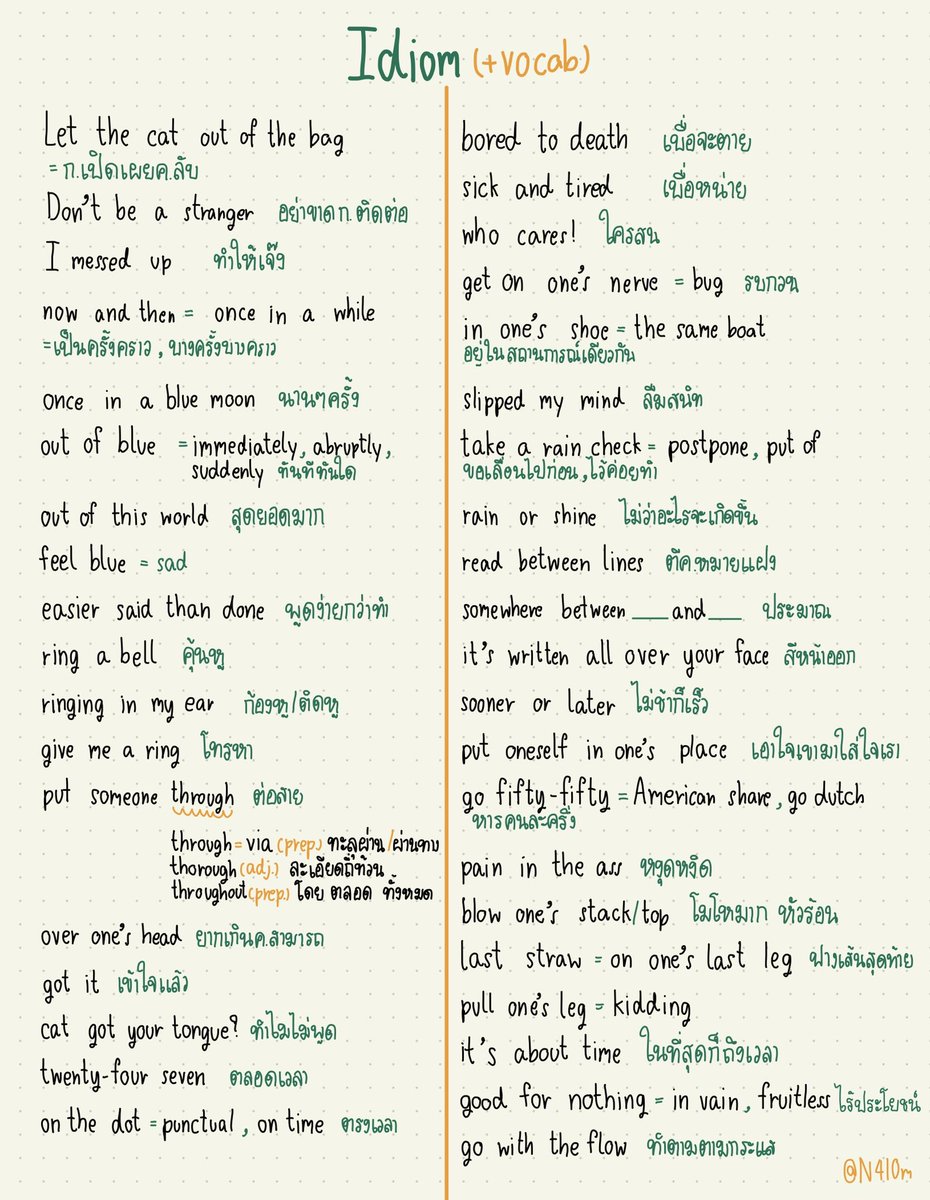 Idiom (+vocab)
Let the cat out of the bag
= ก.เปิดเผยค.ลับ
Don't be a stranger อย่าขาดก.ติดต่อ
I messed up ทำให้เจ๊ง
now and then = once in a while
=เป็นครั้งคราว , บางครั้งบางคราว
once in a blue moon นานๆครั้ง
out of blue = immediately, abruptly,
suddenly ทันทีทันใด
out of this world สุดยอดมาก
feel blue = sad
easier said than done พูดง่ายกว่าทำ
ring a bell คุ้นหู
ringing in my ear ก้องหู/ติดหู
give me a ring โทรหา
put someone through ต่อสาย
through = via (prep.) ทะลุผ่าน/ผ่านทาง
thorough (adj.) ละเอียดถี่ท้วน
throughout (prep.) โดย ตลอด ทั้งหมด
over one's head ยากเกินค.สามารถ
got it เข้าใจแล้ว
cat got your tongue? ทำไมไม่พูด
twenty-four seven ตลอดเวลา
on the dot = punctual, on time ตรงเวลา
bored to death เบื่อจะตาย
sick and tired เบื่อหน่าย
who cares! ใครสน
get on one's nerve = bug รบกวน
in one's shoe = the same boat
อยู่ในสถานการณ์เดียวกัน
slipped my mind ลืมสนิท
take a rain check = postpone, put of
ขอเลื่อนไปก่อน,ไว้ค่อยทำ
rain or shine ไม่ว่าอะไรจะเกิดขึ้น
read between lines ตีค.หมายแฝง
somewhere between ___ and ___ ประมาณ
it's written all over your face สีหน้าออก
sooner or later ไม่ช้าก็เร็ว
put oneself in one's place เอาใจเขามาใส่ใจเรา
go fifty-fifty = American share, go dutch
หารคนละครึ่ง
pain in the ass หงุดหงิด
blow one's stack/top โมโหมาก หัวร้อน
last straw = on one's last leg ฟางเส้นสุดท้าย
pull one's leg = kidding
it's about time ในที่สุดก็ถึงเวลา
good for nothing = in vain, fruitless ไร้ประโยชน์
go with the flow ทำตามตามกระแส
@N410m